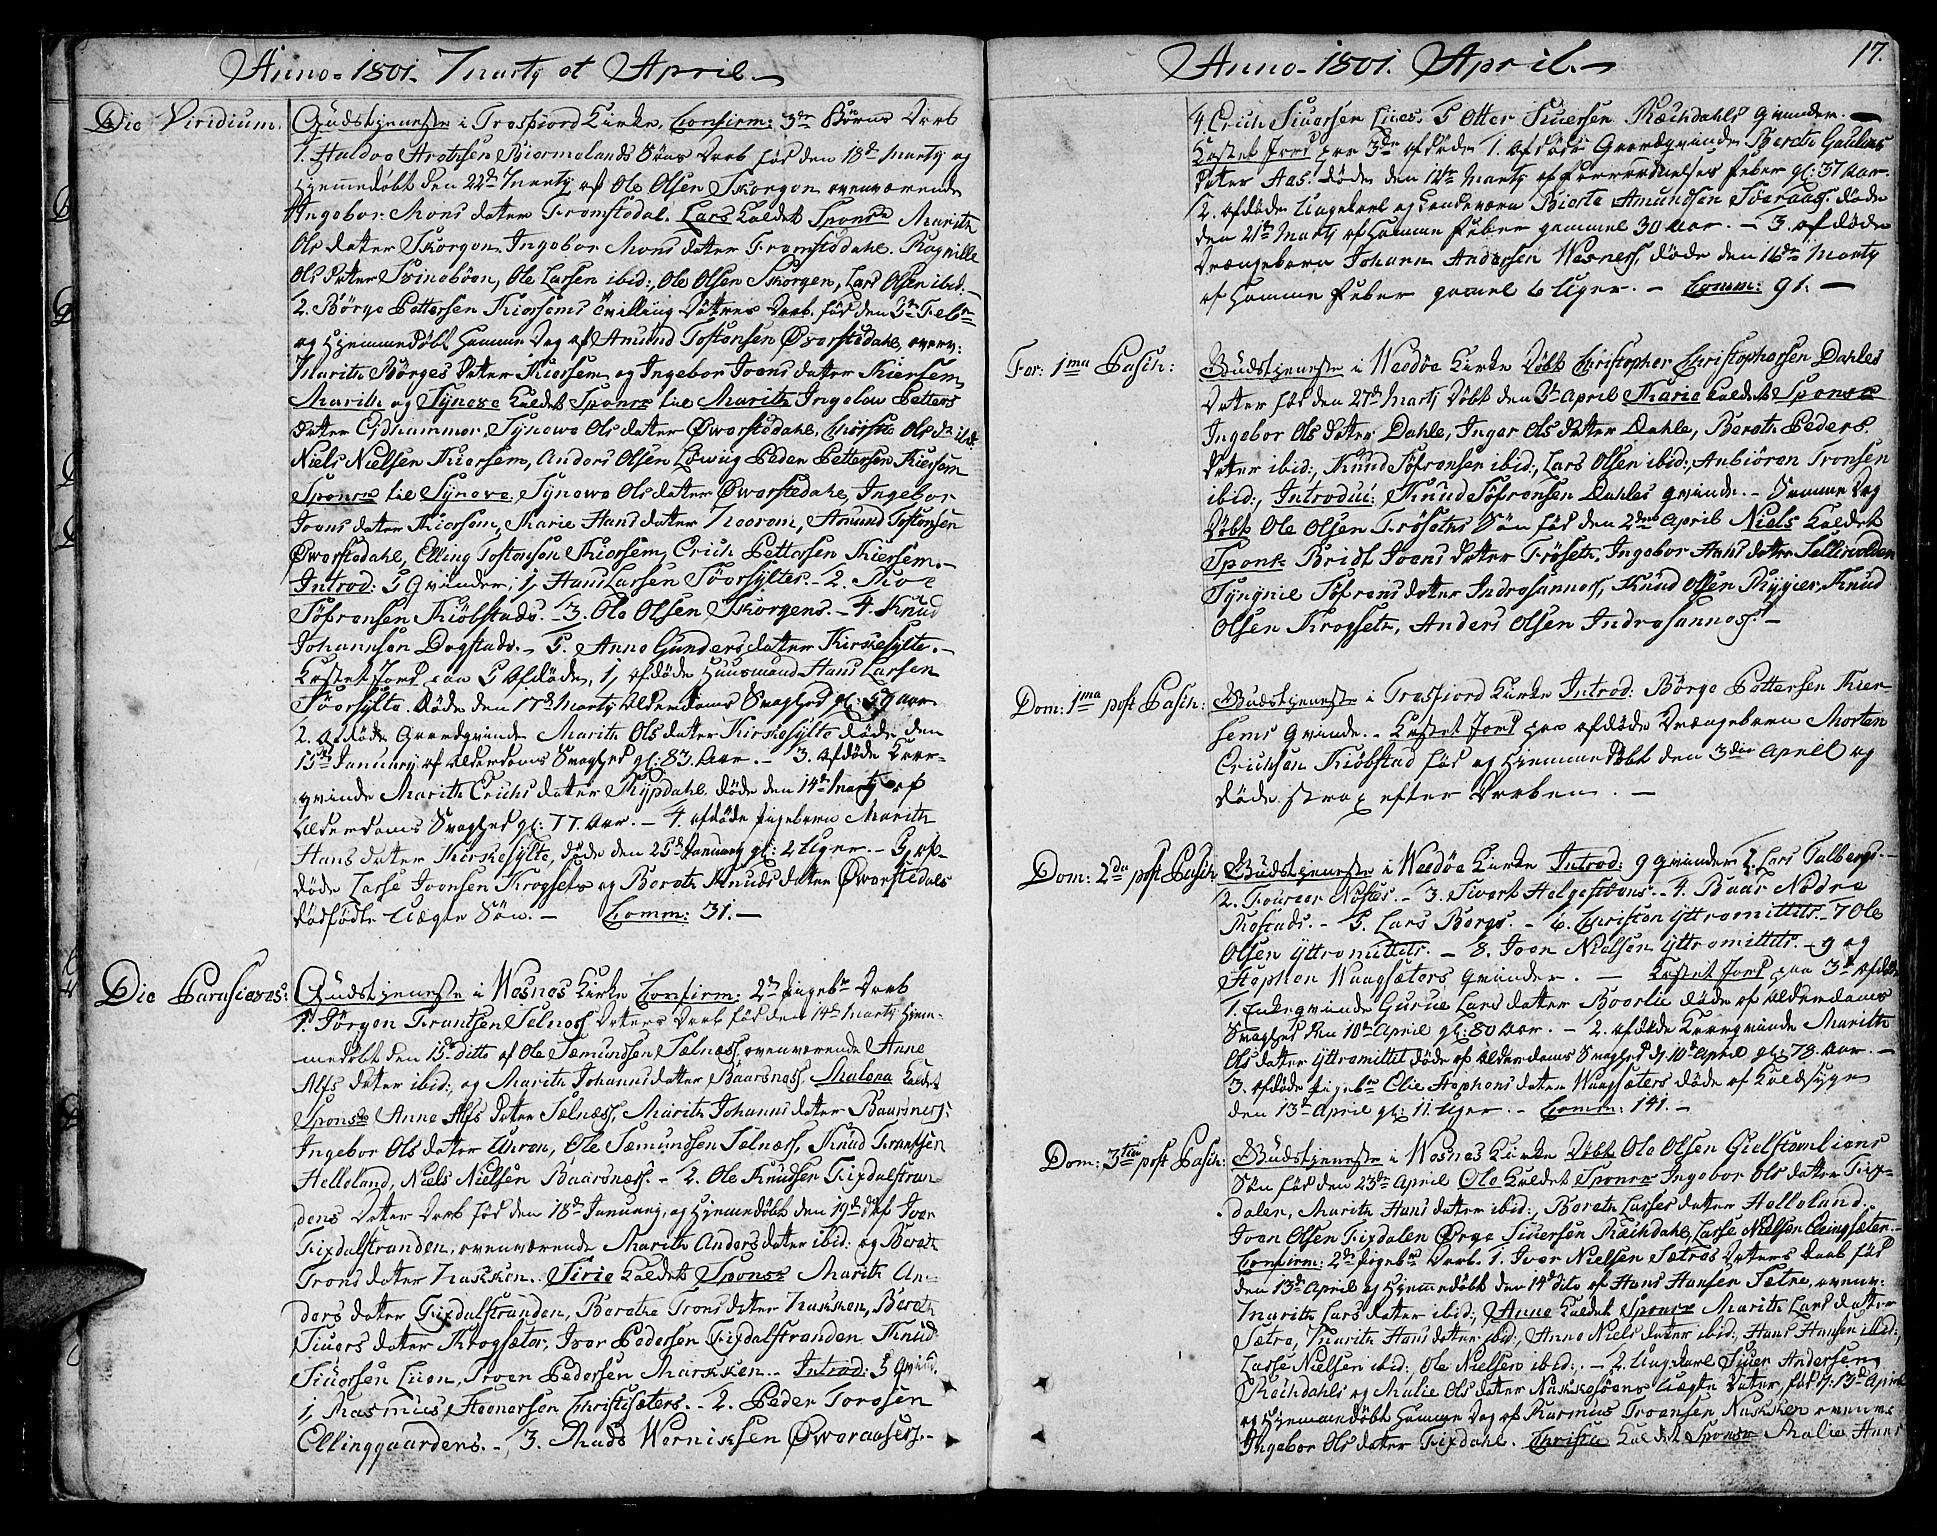 Anno 1801. Marty et April.
Die Viridium. Gudstjeneste i Tresfiord Kirke, Confirm: 3de Børns Daab
1. Haldoe Arethsen Biermelands Søns Daab fød den 18de Marty og
hjemmedøbt den 22de Marty af Ole Olsen Skorgen overværende
Ingebor Monsdatter Fremstedal. Lars kaldet Sponsr Marith
Olsdatter Skorgen Ingebor Monsdatter Fremstedahl. Ragnille
Olsdatter Svinebøen, Ole Larsen ibid:, Ole Olsen Skorgen, Lars Olsen ibid: –
2. Børge Pettersen Kiersems tvilling Døttres Daab. fød den 3de Febr
og hjemmedøbt samme Dag af Amund Tostensen Øvorstedahl, overv:
Marith Børges datter Kiersem og Ingebor Joens datter Kiersem
Marith og Synove kaldet Sponsr til Marith Ingeborg Petters
datter Eidhammer, Synove Olsdatter Øvorstedahl, Chirstie Ols dr ibid:
Niels Nielsen Kiersem, Anders Olsen Løwiig Peder Pettersen Kiersem
Sponsr til Synove: Synove Olsdatter Øvorstedahl, Ingebor
Joens datter Kiersem, Marie Hans datter Moerem, Amund Tostensen
Øvorstedahl, Elling Tostensen Kiersem, Erich Pettersen Kiersem. –
Introd: 5 qvinder, 1, Hans Larsen Søersyltes. – 2. Thor
Søfrensen Kiøbstads. – 3. Ole Olsen Skorgens. – 4. Knud
Johannsen Dogstads. – 5. Anne Gundersdatter Kirkesylte. –
Kastet Jord paa 5 afdøde, 1, afdøde Huusmand Hans Larsen
Søersylte døde den 17de Marty Alderdoms Svaghed gl: 59 aar
2. Afdøde Gaardqvinde Marith Olsdatter Kirkesylte døde den
15de January af Alderdoms Svaghed gl: 83. Aar. – 3. Afdøde Kaar-
qvinde Marith Erichs datter Rypdahl døde den 14de Marty af
Alderdoms Svaghed gl: 77 Aar. – 4. afdøde pigebarn Marith
Hans datter Kirkesylte, døde den 25de January gl: 2 Uger. – 5, af-
døde Lasse Joensen Krogsets og Berethe Knuds datter Øvorstedals
dødfødte Uægte Søn. – Comm: 31. –
Die Parasieves: Gudstjeneste i Wesnes Kirke Confirm: 2de pigebr Daab
1. Jørgen Frantsen Selness Datters Daab fød den 14de Marty hjem-
medøbt den 15de ditto af Ole Sæmundsen Selness, overværende Anne
Alfs datter ibid:, og Marith Johannsdatter Baarsness. Malena kaldet
Sponsr Anne Alfs datter Selness, Marith Johanns datter Baarsness:
Ingebor Olsdatter Uhren, Ole Sæmundsen Selness, Knud Frantsen
Helleland, Niels Nielsen Baarsness. – 2. Ole Knudsen Fixdalstran-
dens Datter Daab fød den 18de January, og hjemmedøbt den 19de dito af Iver
Fixdalstranden, overværende Marith Andersdatter ibid: og Bereth
Trons datter Naksken. Sirie kaldet Sponsr Marith An-
ders datter Fixdalstranden, Berethe Tronsdatter Naksken, Bereth
Siuers datter Krogsæter, Iver Pedersen Fixdalstranden Knud
Siuersen Lien, Sven Pedersen Marsken. – Introd: 5 qvind:
1, Rasmus Steenersen Christisæters. – 2. Peder Toresen
Ellinggaardens. – 3. Mads Werniksen Øveraasess. –

Anno 1801. April. – 17.
4. Erich Siuersen Lies. 5 Otter Siuersen Rechdahls qvinder. –
Kastet Jord paa 3de afdøde 1. afdøde Gaardqvinde Bereth
datter Aas. døde den 14de Marty af Forraadnelses Feber gl: 37 Aar.
2. afdøde Ungekarl og Landeværn Bierte Amundsen Søeraas. døde
den 21de Marty af samme Feber gammel 30 Aar. – 3. afdøde
Drængebarn Johann Andersen Wesness. døde den 16de Marty
af samme Feber gamel 6 Uger. – Comm: 91. –
Fer: 1ma Pasch: Gudstjeneste i Weedøe Kirke døbt Christopher Christophersen Dahles
Datter fød den 27de Marty døbt den 5te April Marie kaldet Sponsr
Ingebor Olsdatter Dahle, Inger Olsdatter Dahle, Bereth Peders
datter ibid:, Knud Søfrensen ibid:, Lars Olsen ibid:, Anbiøren Tronsen
ibid:, Introduc: Knud Søfrensen Dahles qvinde. – Samme Dag
døbt Ole Olsen Frøseths Søn fød den 2den April Niels kaldet
Sponsr Bridt Joens datter Frøseth. Ingebor Hans datter Sellevolden
Synnie Søfrensdatter Indresanness, Knud Olsen Rypier, Knud
Olsen Krogseth, Anders Olsen Indresanness. –
Dom: 1ma post Pasch: Gudstjeneste i Tresfiord Kirke Introd: Børge Pettersen Kier-
sems qvinde. – Kastet Jord paa afdøde Drængebarn Morten
Erichsen Kiøbstad fød og hjemmedøbt den 3die April og
døde strax efter Daaben. –
Dom: 2da post Pasch: Gudstjeneste i Weedøe Kirke Introd: 9 qvinder 1. Lars Talbergs. –
2. Toureer Nøstes. – 3. Sivert Helgestøens. – 4. Baar Nedre
Rostads. – 5. Lars Bergs. – 6. Christen yttremittets. – 7 Ole
Olsen yttremittets. – 8. Joen Nielsen yttremittets. – 9 og
Stephen Waagsæters qvinder. – Kastet Jord paa 3de afdøde
1. Enkeqvinde Gurue Larsdatter Boerlie døde af Alderdoms
Svaghed den 10de April gl: 80 Aar. – 2. afdøde Kaarqvinde Marith
Olsdatter yttremittet døde af Alderdoms Svaghed d: 10de April gl: 78. Aar. –
3. afdøde pigebr Elie Stephensdatter Waagsæters døde af Koldsyge
den 13de April gl: 11. Uger. – Comm: 141. –
Dom: 3tia post Pasch: Gudstjeneste i Wesnes Kirke døbt Ole Olsen Gielstenliens
Søn fød den 23de April Ole kaldet Sponsr Ingebor Olsdatter Fix-
dalen, Marith Hans datter ibid:, Bereth Lasses datter Helleland.
Joen Olsen Fixdalen Ørge Siuersen Rechdahl, Lasse Nielsen Elingsæter. –
Confirm: 2de pigebr Daab. 1. Iver Nielsen Sætres Datters Daab fød
den 13de April og hjemmedøbt den 14de dito af Hans Hansen Sætre, overv:
Marith Larsdatter ibid:, Anne kaldet Sponsr Marith Larsdatter
Sætre, Marith Hans datter ibid:, Anne Nielsdatter ibid:, Hans Hansen ibid:,
Lasse Nielsen ibid:, Ole Nielsen ibid:, – 2. Ungkarl Siuer Andersen
Rechdahls og Malie Olsdatter Naskesøens Uægte Datter, fød d: 13de April
og hjemmedøbt samme Dag af Rasmus Troensen Nasken overvs
Ingebor Olsdatter Fixdahl. Christie kaldet Sponsr Malie Hans